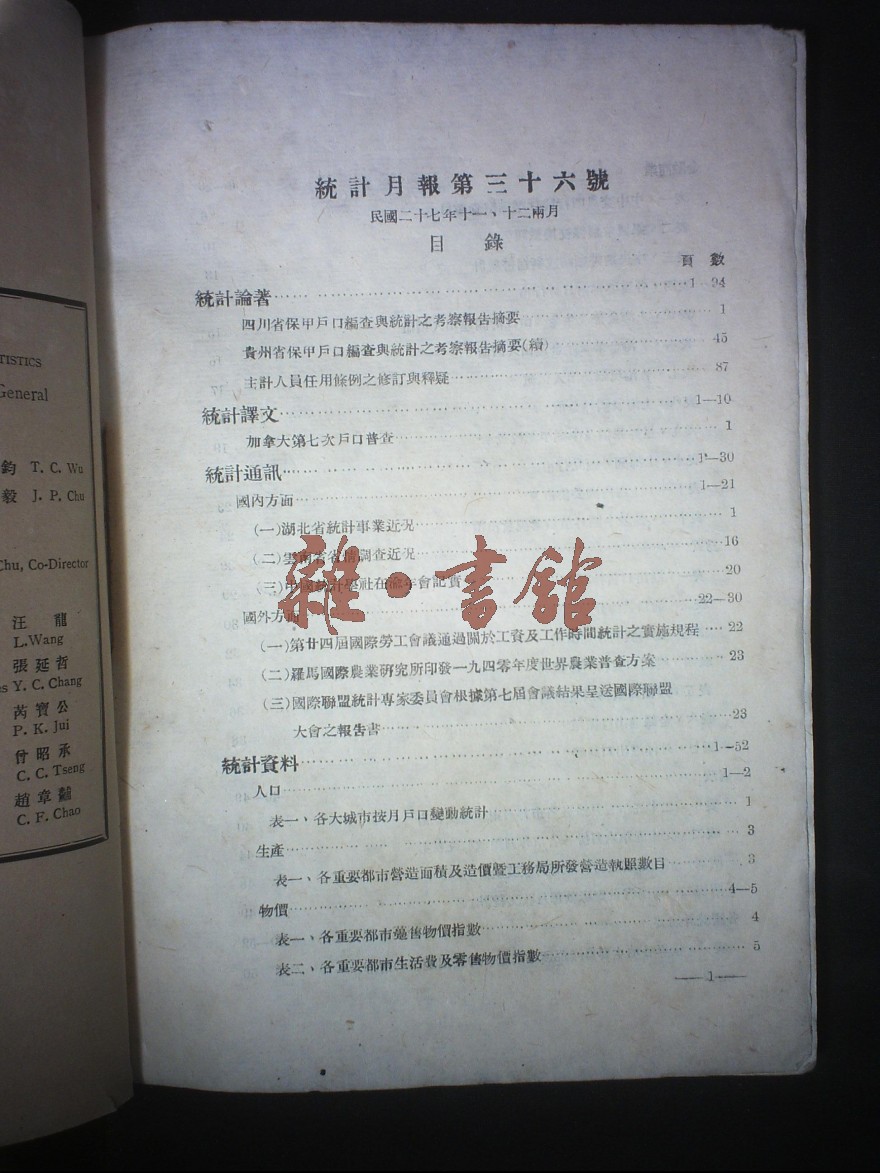 TISTICS
General
鈞 T. C. Wu
毅 J. P. Chu
Chu, Co-Director
汪龍
L. Wang
張延哲
es Y. C. Chang
芮寶公
P. K. Jui
曾昭承
C. C. Tseng
趙章黼
C. F. Chao
統計月報第三十六號
民國二十七年十一、十二兩月
目錄
頁數
統計論著 1—94
四川省保甲戶口編查與統計之考察報告摘要 1
貴州省保甲戶口編查與統計之考察報告摘要(續) 45
主計人員任用條例之修訂與釋疑 87
統計譯文 1—10
加拿大第七次戶口普查 1
統計通訊 1—30
國內方面 1—21
(一)湖北省統計事業近况 1
(二)雲南省省情調查近况 16
(三)中國統計學社在渝年會記實 20
國外方面 22—30
(一)第廿四屆國際勞工會議通過關於工資及工作時間統計之實施規程 22
(二)羅馬國際農業研究所印發一九四零年度世界農業普查方案 23
(三)國際聯盟統計專家委員會根據第七屆會議結果呈送國際聯盟
大會之報告書 23
統計資料 1—52
人口 1—2
表一、各大城市按月戶口變動統計 1
生產 3
表一、各重要都市營造面積及造價暨工務局所發營造執照數目 3
物價 4—5
表一、各重要都市躉售物價指數 4
表二、各重要都市生活費及零售物價指數 5
—1—
雜·書館